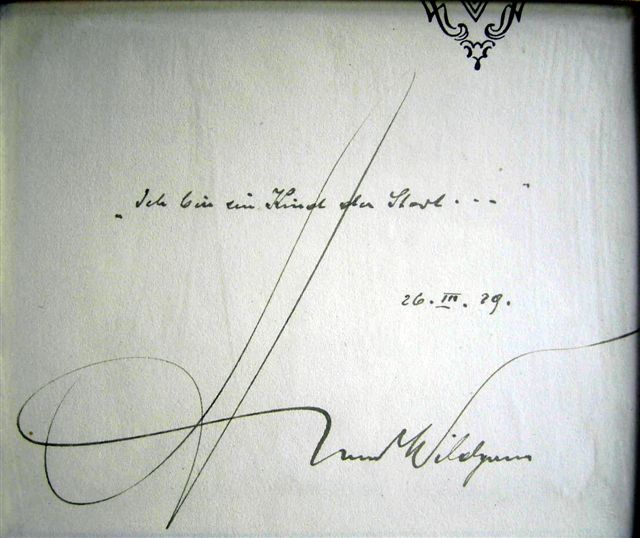 „Ich bin ein Kind der Stadt..."
26. III. 29.
Anton Wildgans